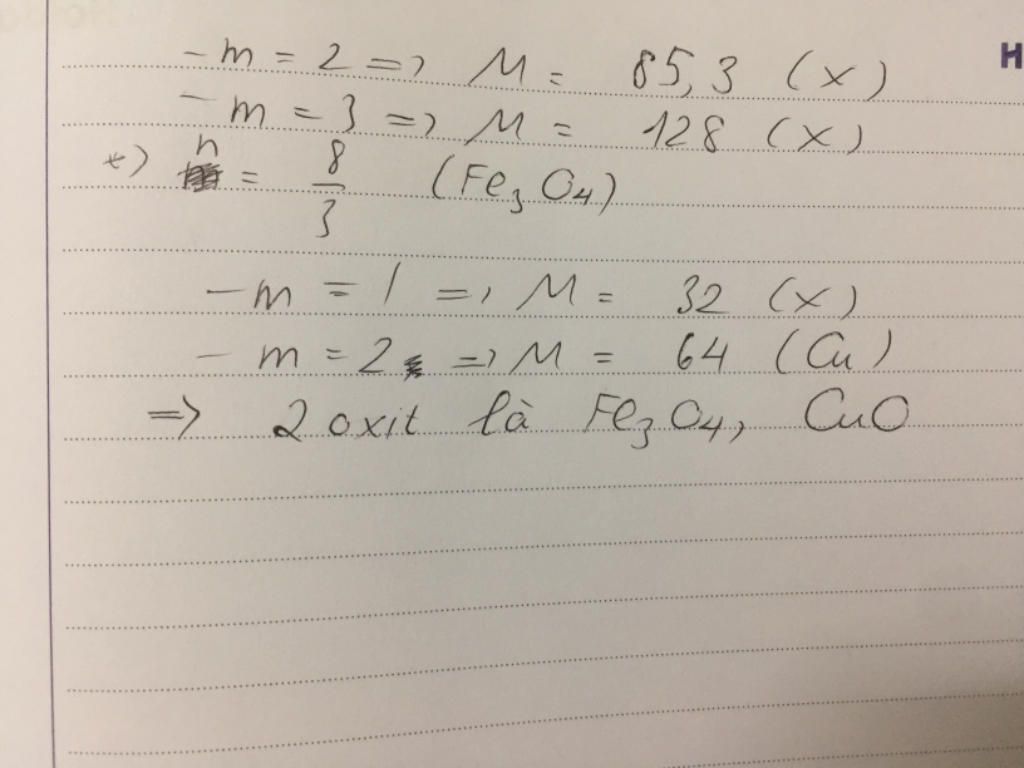 - m = 2 => M = 85,3 (x)
H
- m = 3 => M = 128 (x)
*) n = 8/3 (Fe₃O₄)
- m = 1 => M = 32 (x)
- m = 2 => M = 64 (Cu)
=> 2 oxit là Fe₃O₄, CuO